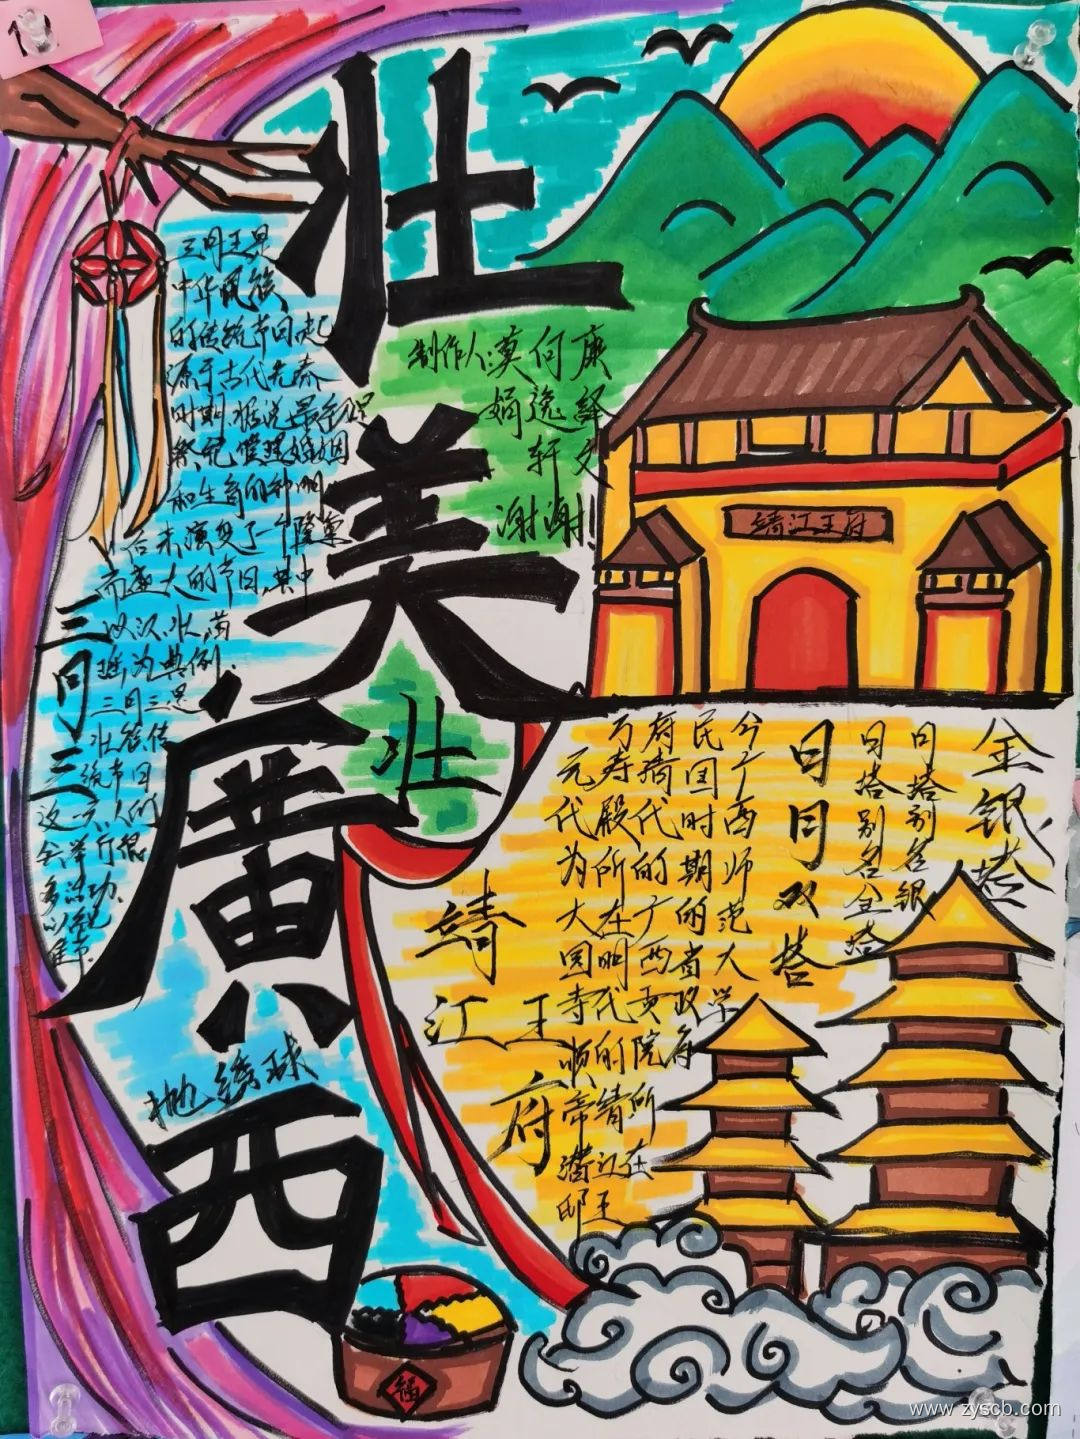 壮
美
廣
西
制作人:莫何康
娟逸绎
轩文
谢谢!
三月三是
中华民族
的传统节日,起
源于古代先秦
时期,据说最早
祭祀 婚姻
和生育的神明,
后来演变了一个隆重
而盛大的节日,其中
以汉、壮、苗
瑶为典例.
三月三是
壮族传
统节日
这一天,人们
会举行很
多活动,
三月三
壮
抛绣球
靖江王府
靖江王府
今广西师范大学
民国时期的省政府
府清代的广西贡院所在
万寿殿所在明代的靖江王
元代为大圆寺顺帝潜邸
日月双塔
日塔别名金塔
月塔别名银
金银塔
福
www.zyscb.com